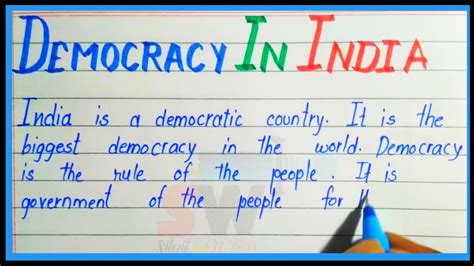 DEMOCRACY IN INDIA
India is a democratic country. It is the
biggest democracy in the world. Democracy
is the rule of the people. It is
government of the people for
SW
Silent Writer